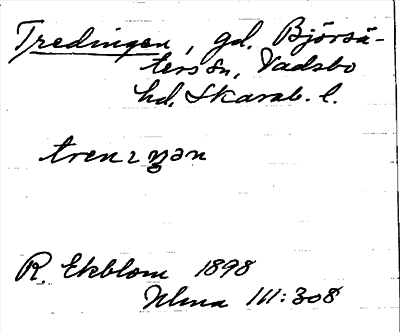 Tredingen, gd. Björsä-
ters sn, Vadsbo
hd, Skarab. l.
R. Ekblom 1898
Ulma 111:308